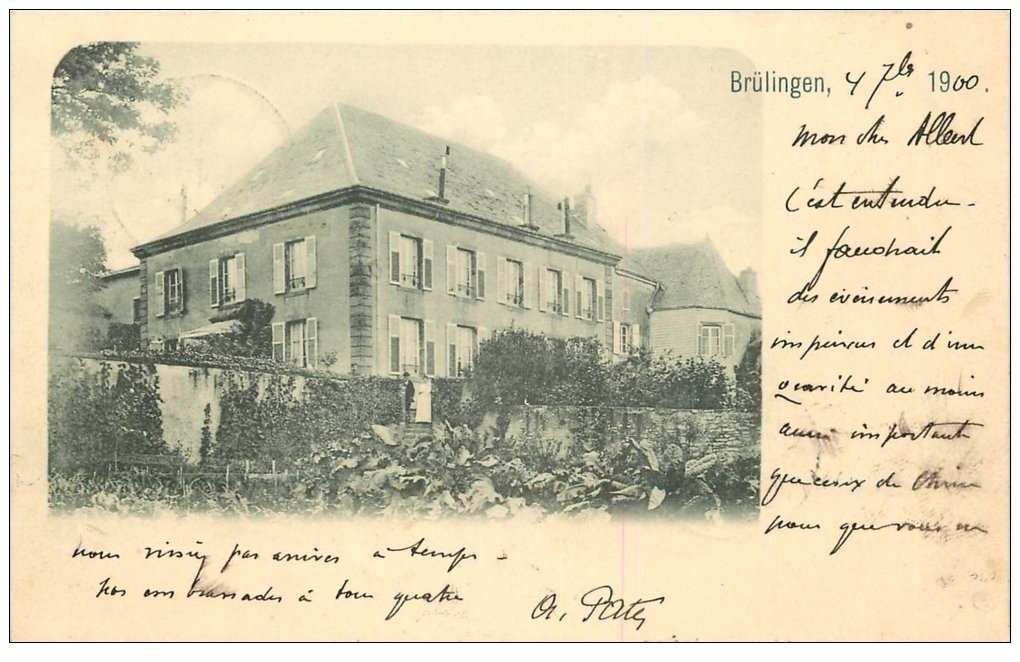 Brülingen, 4 7bre 1900.
Mon cher Albert
C'est entendu -
il faudrait
des évènements
imprévus et d'une
gravité au moins
aussi importante
que ceux de Chine
pour que vous ne
nous vissiez pas arriver à temps -
Nos embrassades à tous quatre
A.